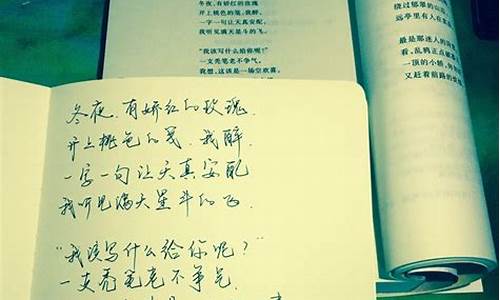 冬夜,有娇红的玫瑰
开上桃色的笺,我醉,
一字一句让天真安配,
我听见满天星斗的飞。
"我该写什么给你呢?"
一支秃笔老不争气,
我想,这该是一场空欢喜。
绕过郁翠的山
远亭里有人在
最是那迷人的
看,乱鸦正点
一顶的小轿,
又赶着前路的
冬夜,有娇红的玫瑰,
开上桃色的笺,我醉,
一字一句让天真安配
我听见满天星斗的飞,
"我该写什么给你呢?"
一支秃笔老不争气,